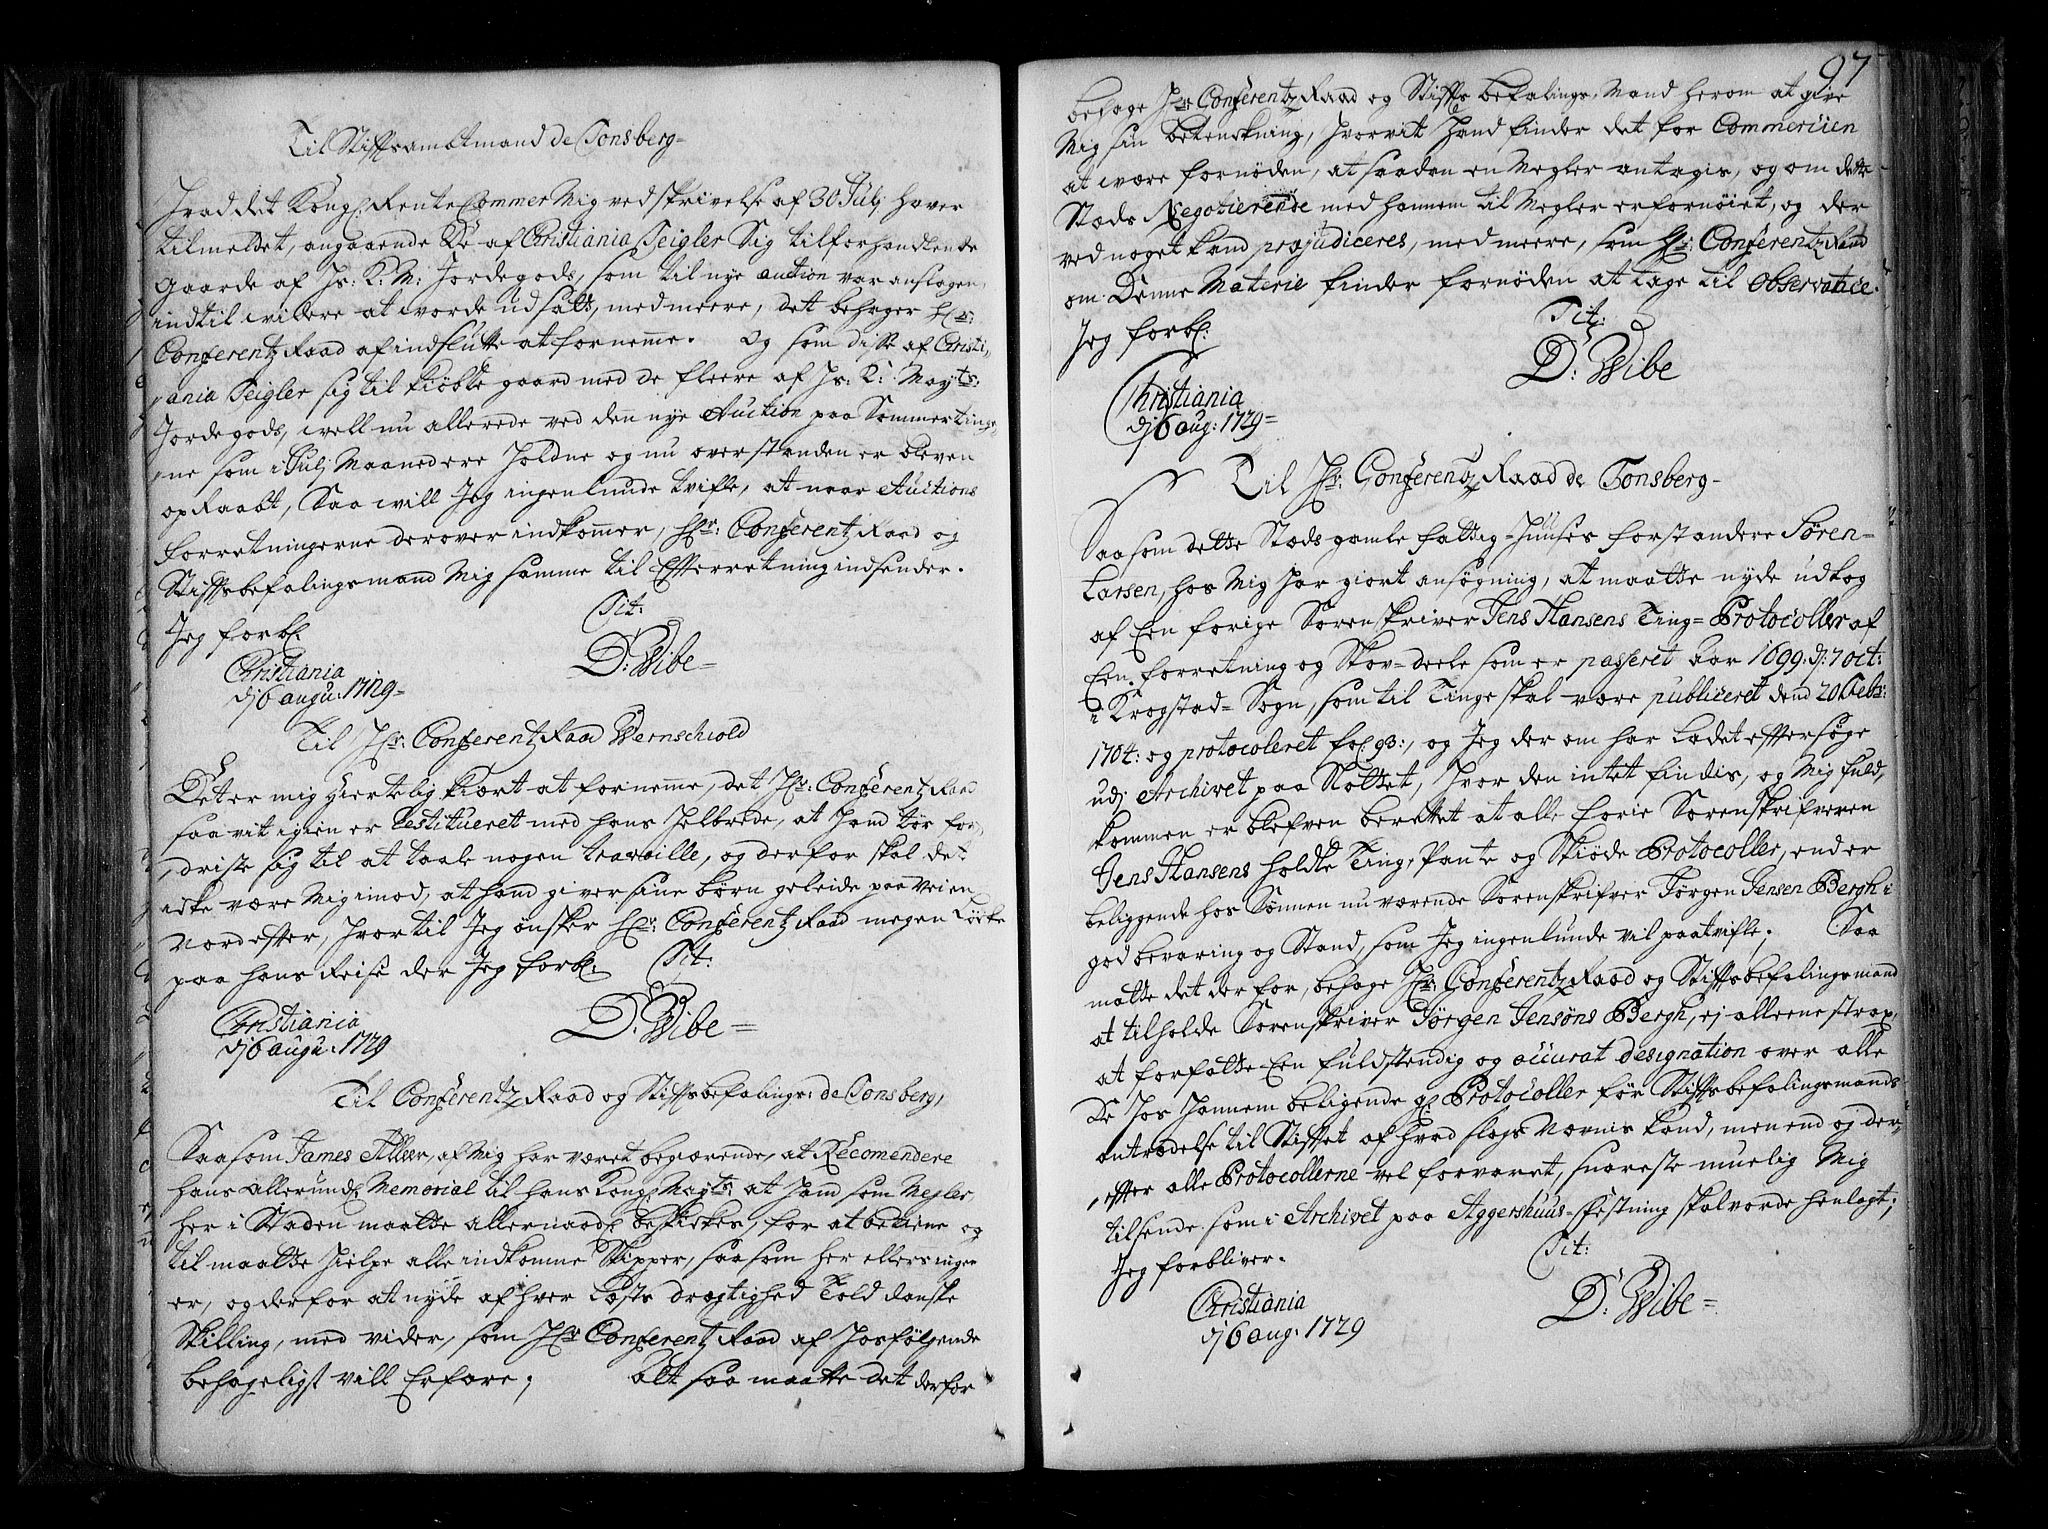 Til Stiftsamtmand de Tonsberg=
Hvad det Kongl: Rente Cammer Mig ved skrivelse af 30 Julj haver
tilmeldet, angaaende De af Christiania Seigler Sig tilforhandlende
gaarde af Hs: K: M: Jordegods, som til nye auction var anslagen,
indtil videre at vorde udsatt, med meere, det behager Hr:
Conferentz Raad af indslutte at fornemme. Og som disse af Christi,
,ania Seigler sig til kiøbte gaard med de fleere af Hs: K: Mayts:
Jordegods, vell nu allerede ved den nye Auction paa Sommertinge,
,ne som i Julj Maaned ere holdne og nu overstanden er bleven
op Raabt, Saa vill Jeg ingenlunde tvifle, at naar Auctions
forretningerne derover indkommer, Hr: Conferentz Raad og
Stiftsbefalingsmand Mig samme til Efterretning indsender.
Jeg forbl: Tit:
Christiania
dj 6 augu: 1729= D: Wibe=
Til Hr: Conferentz Raad Wernschiold
Det er mig Hiertelig kiært at fornemme, det Hr: Conferentz Raad
saavit igien er Restitueret med hans helbrede, at hand tør for,
,driste sig til at taale nogen travaille, og derfor skal det
icke være Mig imod, at hand giver sine børn geleide paa Veien
Nordefter, hvortil Jeg ønsker Hr: Conferentz Raad megen Løcke
paa hans Reise der Jeg forbl: Tit:
Christiania
dj 6 augu: 1729 D: Wibe=
Til Conferentz Raad og Stiftsbefalings: de Tonsberg,
Saasom James Aller, af Mig har været begærende, at Recomendere
hans allerund: Memorial til hans Kongl Mayts: at hand som Megler
her i Staden maatte allernaadl beskickes, for at betiene og
til maatte hielpe alle indkomne Skipper, saasom her ellers ingen
er, og derfor at nyde af hver Lasts drægtighed Told danske
Skilling, med vider, som Hr Conferentz Raad af Hosfølgende
behageligst vill Erfare; Alt saa maatte det derfor
97
behage Hr: Conferentz Raad og Stiffts befalings Mand herom at give
Mig sin betenckning, hvorvit hand finder det for Commercien
at være fornøden, at saaden en Megler antages, og om dette
Stæds Negotierende med hannem til Megler er fornøiet, og der
ved noget kand præjudiceres, med meere, som Hr: Conferentz Raad
om Denne Materie finder fornøden at tage til Observatice.
Jeg forbl: Tit:
Christiania
dj 6 aug: 1729= D: Wibe
Til Hr: Conferentz Raad de Tonsberg-
Saasom dette Stæds gamle fattig=Huuses forstandere Søren=
Larsen, hos Mig har giort ansøgning, at maatte nyde udtog
af Een forige Sorenskriver Jens Hansens Ting=Protocoller af
Een forretning og Skov=deele som er passeret Aar 1699: dj: 7 Oct:
i Krogstad=Sogn, som til Tinge skal være publiceret dend 20 Febr:
1704: og protocoleret fol: 93:, og Jeg der om har Ladet eftersøge
udj Archivet paa Slottet, hvor den intet findis, og Mig fuld,
kommen er blefven berettet at alle forie Sorenskrifveren
Jens Hansens holdte Ting, Pante og Skiøde Protocoller, end er
beliggende hos Sønnen nu værende Sorenskrifver Jørgen Jensen Bergh i
god bevaring og Stand, som Jeg ingenlunde vil paatvifle; Saa
matte det der for, behage Hr: Conferentz Raad og Stiftsbefalingsmand
at tilholde Sorenskriver Jørgen Jensøns Bergh, ej alleene strax,
at forfatte Een fuldstendig og accurat designation over alle
De hos hannem beligende gl: Protocoller før Stiftsbefalingsmands
antrædelse til Stiftet af hvad slags Navnis kand, men end og der,
,effter alle Protocollerne vel forvaret, snareste muelig Mig
tilsende som i Archivet paa Aggershuus=Festning skal vorde henlagt;
Jeg forbliver. Tit:
Christiania
dj 6 aug: 1729 D: Wibe=